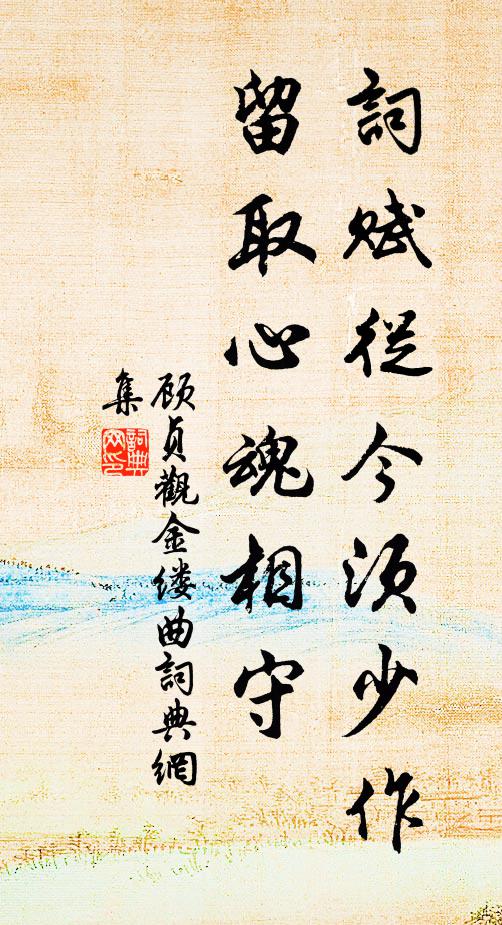 詞賦從今須少作
留取心魂相守
顾贞觀金缕曲詞典網
集
詞典
网印